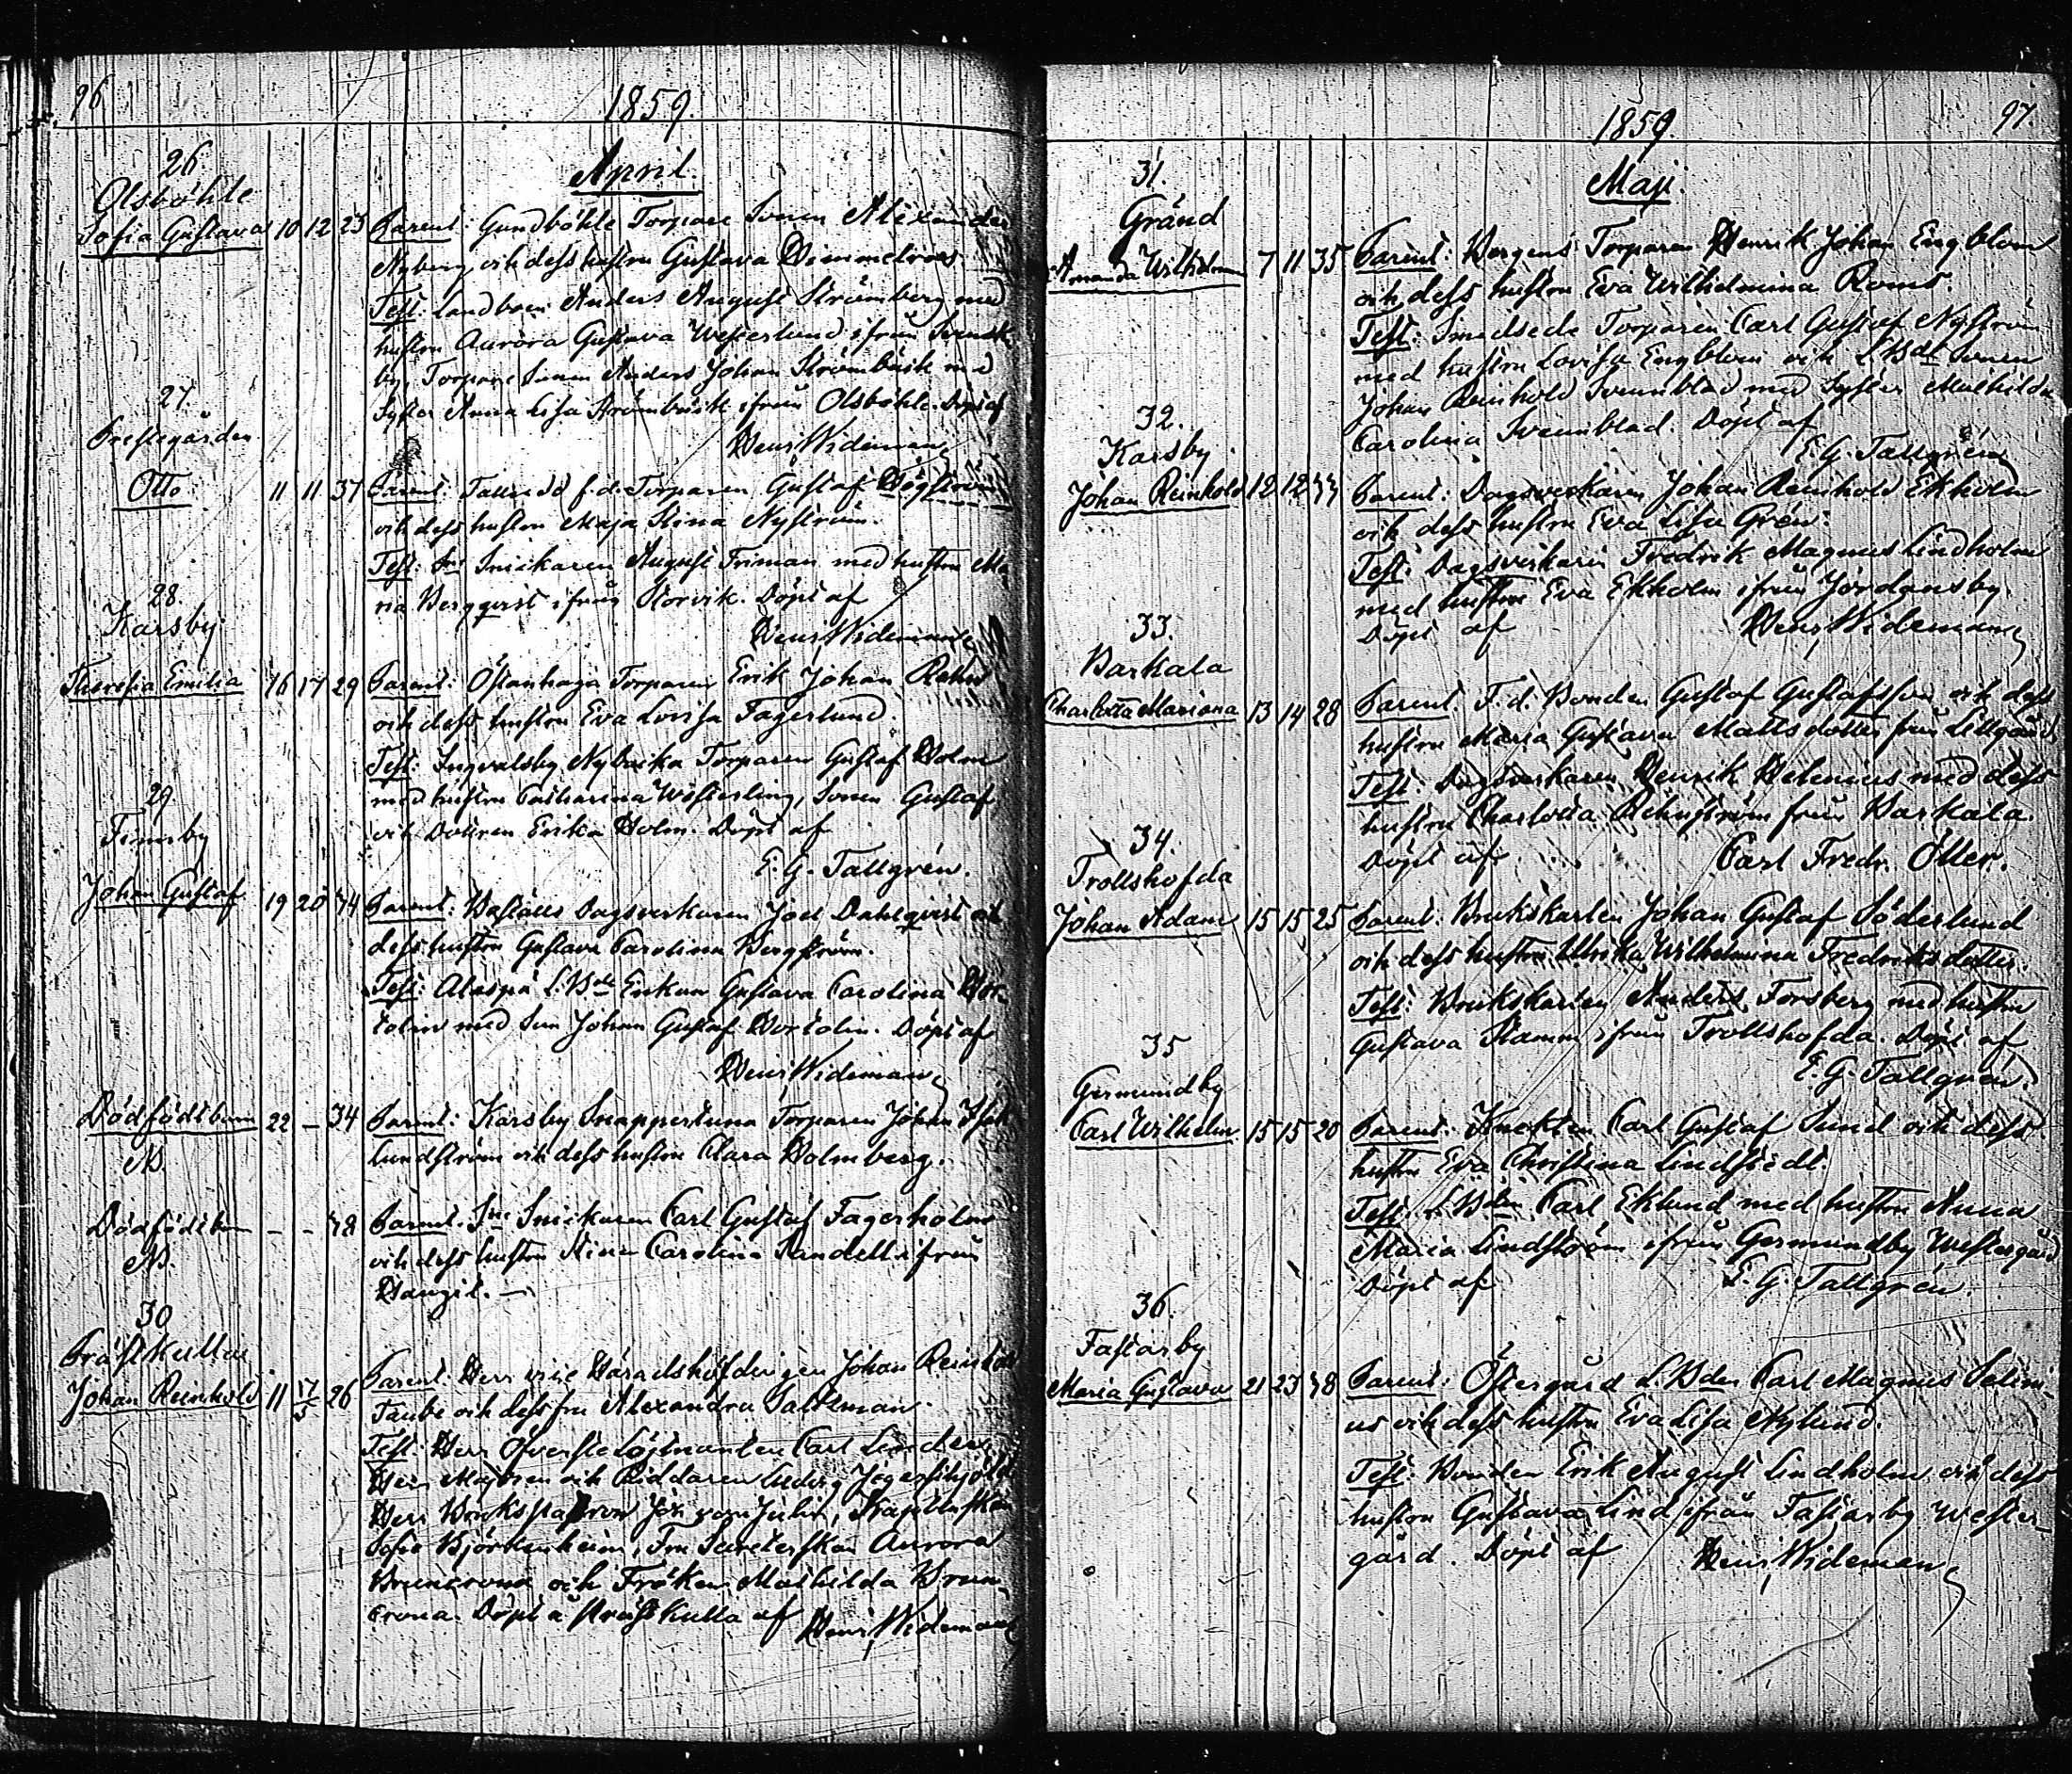 96
1859.
April.
26
Olsböhle
Sofia Gustava 10 12 23 Parent: Gundböhle Torpare Sonen Alexander
Nyberg och dess hustru Gustava Himmelroos.
Test: Landboen Anders August Strömberg med
hustru Aurora Gustava Westerlund ifrån Svensk
by, Torpare Sonen Anders Johan Strömbäck med
Syster Anna Lisa Strömbäck ifrån Olsböhle. Döpt af
Henr. Wideman
27
Prestegården
Otto 11 11 37 Parent: f.d. Torparen Gustaf Högström
och dess hustru Maja Stina Nyström.
Test: Snickaren August Friman med hustru Ma
ria Bergqvist ifrån Storvik. Döpt af
Henr. Wideman
28.
Karsby
Theresia Emilia 16 17 29 Parent: Östanhaga Torparen Erik Johan Rehn
och dess hustru Eva Lovisa Fagerlund.
Test: Ingvalsby Nybacka Torparen Gustaf Holm
med hustru Catharina Westerling, Sonen Gustaf
och Dottren Erika Holm. Döpt af
E. G. Tallgrén.
29
Finnsby
Johan Gustaf 19 20 44 Parent: Dagsverkaren Joel Dahlqvist och
dess hustru Gustava Carolina Bergström.
Test: Alaspä Enkan Gustava Carolina Hor-
tolin med Son Johan Gustaf Hortolin. Döpt af
Henr. Wideman
Dödfödt barn 22 – 34 Parent: Karsby Snappertuna Torparen Johan Isak
Lundström och dess hustru Clara Holmberg.
NB.
Dödfödt barn – – 48 Parent: Snickaren Carl Gustaf Fagerholm
och dess hustru Stina Carolina Sandell ifrån
NB.
Hangö. –
30
Präst Kulla
Johan Reinhold 11 17/5 26 Parent: Herr vice Häradshöfdingen Johan Reinhold
Taube och dess fru Alexandra Saltzman.
Test: Herr Öfverste Löjtnanten Carl Linder,
Herr Majoren och Riddaren Ludvig Jägerskjöld
Herr Brukspatron von Julin,
Sofie Björkenheim, Fru Aurora
Bruncrona och Fröken Mathilda Brun-
crona. Döpt å Präst Kulla af Henr. Wideman
97.
1859
Maji.
31.
Gränd
Amanda Wilhelmina 7 11 35 Parent: Bergens Torparen Henrik Johan Engblom
och dess hustru Eva Wilhelmina Roms.
Test: Smedsede Torparen Carl Gustaf Nyström
med hustru Lovisa Engblom och Sonen
Johan Reinhold Svennblad med Syster Mathilda
Carolina Svennblad. Döpt af
E. G. Tallgrén
32.
Karsby
Johan Reinhold 12 12 44 Parent: Dagsverkaren Johan Reinhold Ekholm
och dess hustru Eva Lisa Grén.
Test: Dagsverkaren Fredrik Magnus Lindholm
med hustru Eva Ekholm ifrån Jordansby.
Döpt af Henr. Wideman
33.
Barkala
Charlotta Mariana 13 14 28 Parent: F.d. Bonden Gustaf Gustafsson och dess
hustru Maria Gustava Mattsdotter från Lillgård
Test: Dagsverkaren Henrik Helenius med dess
hustru Charlotta Rehnström från Barkala.
Döpt af Carl Fredr. Öller.
34.
Trollshofda
Johan Adam 15 15 25 Parent: Brukskarlen Johan Gustaf Söderlund
och dess hustru Ulrika Wilhelmina Fredriksdotter.
Test: Brukskarlen Anders Forsberg med hustru
Gustava Stamm ifrån Trollshofda. Döpt af
E. G. Tallgrén.
35
Germundby
Carl Wilhelm 15 15 20 Parent: Knekten Carl Gustaf Sund och dess
hustru Eva Christina Lindstedt.
Test: Carl Eklund med hustru Anna
Maria Lindström ifrån Germundby Westergård
Döpt af E. G. Tallgrén.
36.
Fastarby
Maria Gustava 21 23 48 Parent: Östergård Carl Magnus Selin-
us och dess hustru Eva Lisa Nylund.
Test: Bonden Erik August Lindholm och dess
hustru Gustava Lind ifrån Fastarby Wester-
gård. Döpt af Henr. Wideman